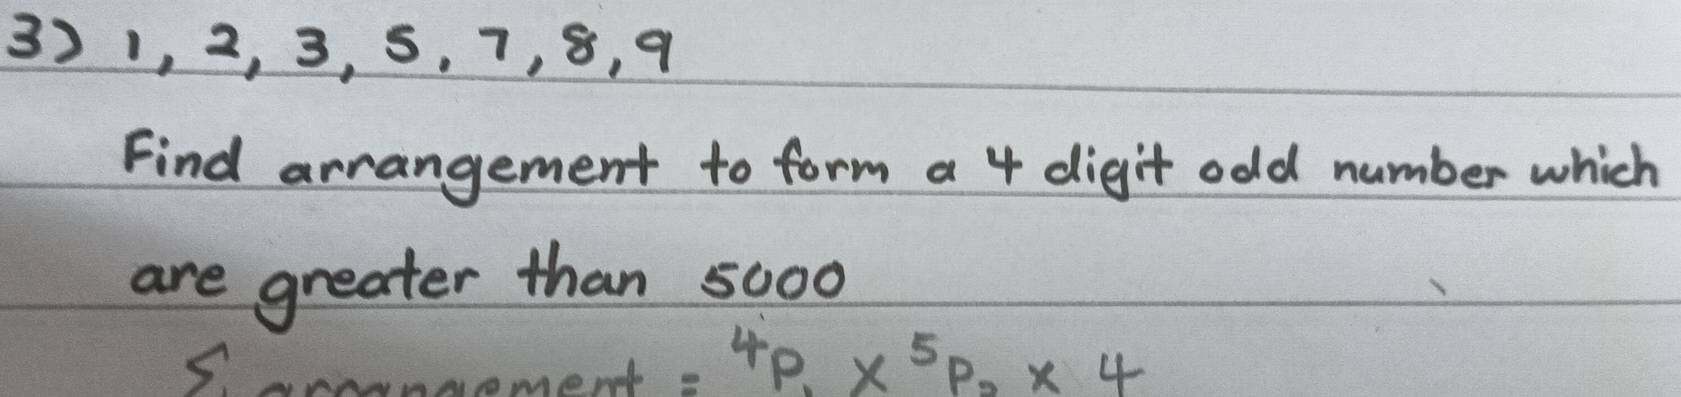 3) 1, 2, 3, 5, 7, 8, 9
Find arrangement to form a 4 digit odd number which
are greater than 5000
Σ arrangement = ⁴P₁ × ⁵P₂ × 4